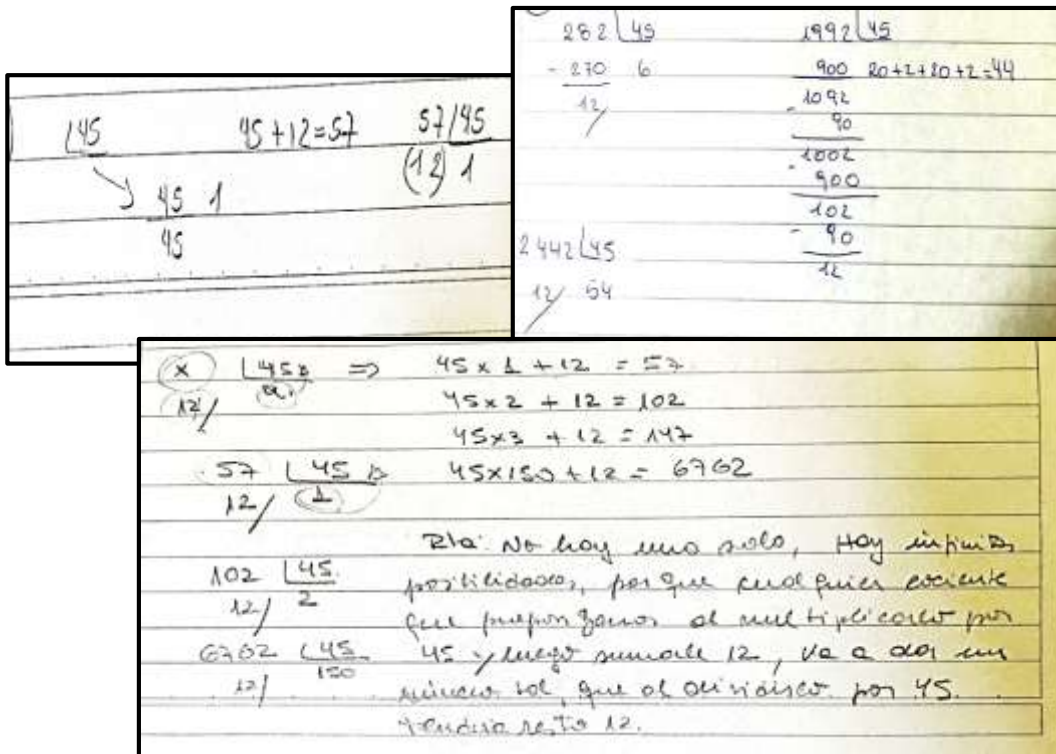 45
45 + 12 = 57
57 45
(12) 1
45 1
45
282 45
- 270 6
12
1992 45
900 20+2+20+2=44
1092
- 90
1002
- 900
102
- 90
12
2442 45
12 54
x 45 ⇒ 45 x 1 + 12 = 57
12
45 x 2 + 12 = 102
45 x 3 + 12 = 147
57 45 45 x 150 + 12 = 6762
12 1
Rta: No hay uno solo, Hay infinitas
102 45 posibilidades, porque cualquier cociente
12 2 que propongamos al multiplicarlo por
6762 45 45 y luego sumarle 12, va a dar un
12 150 número tal que al dividirlo por 45
tendrá resto 12.